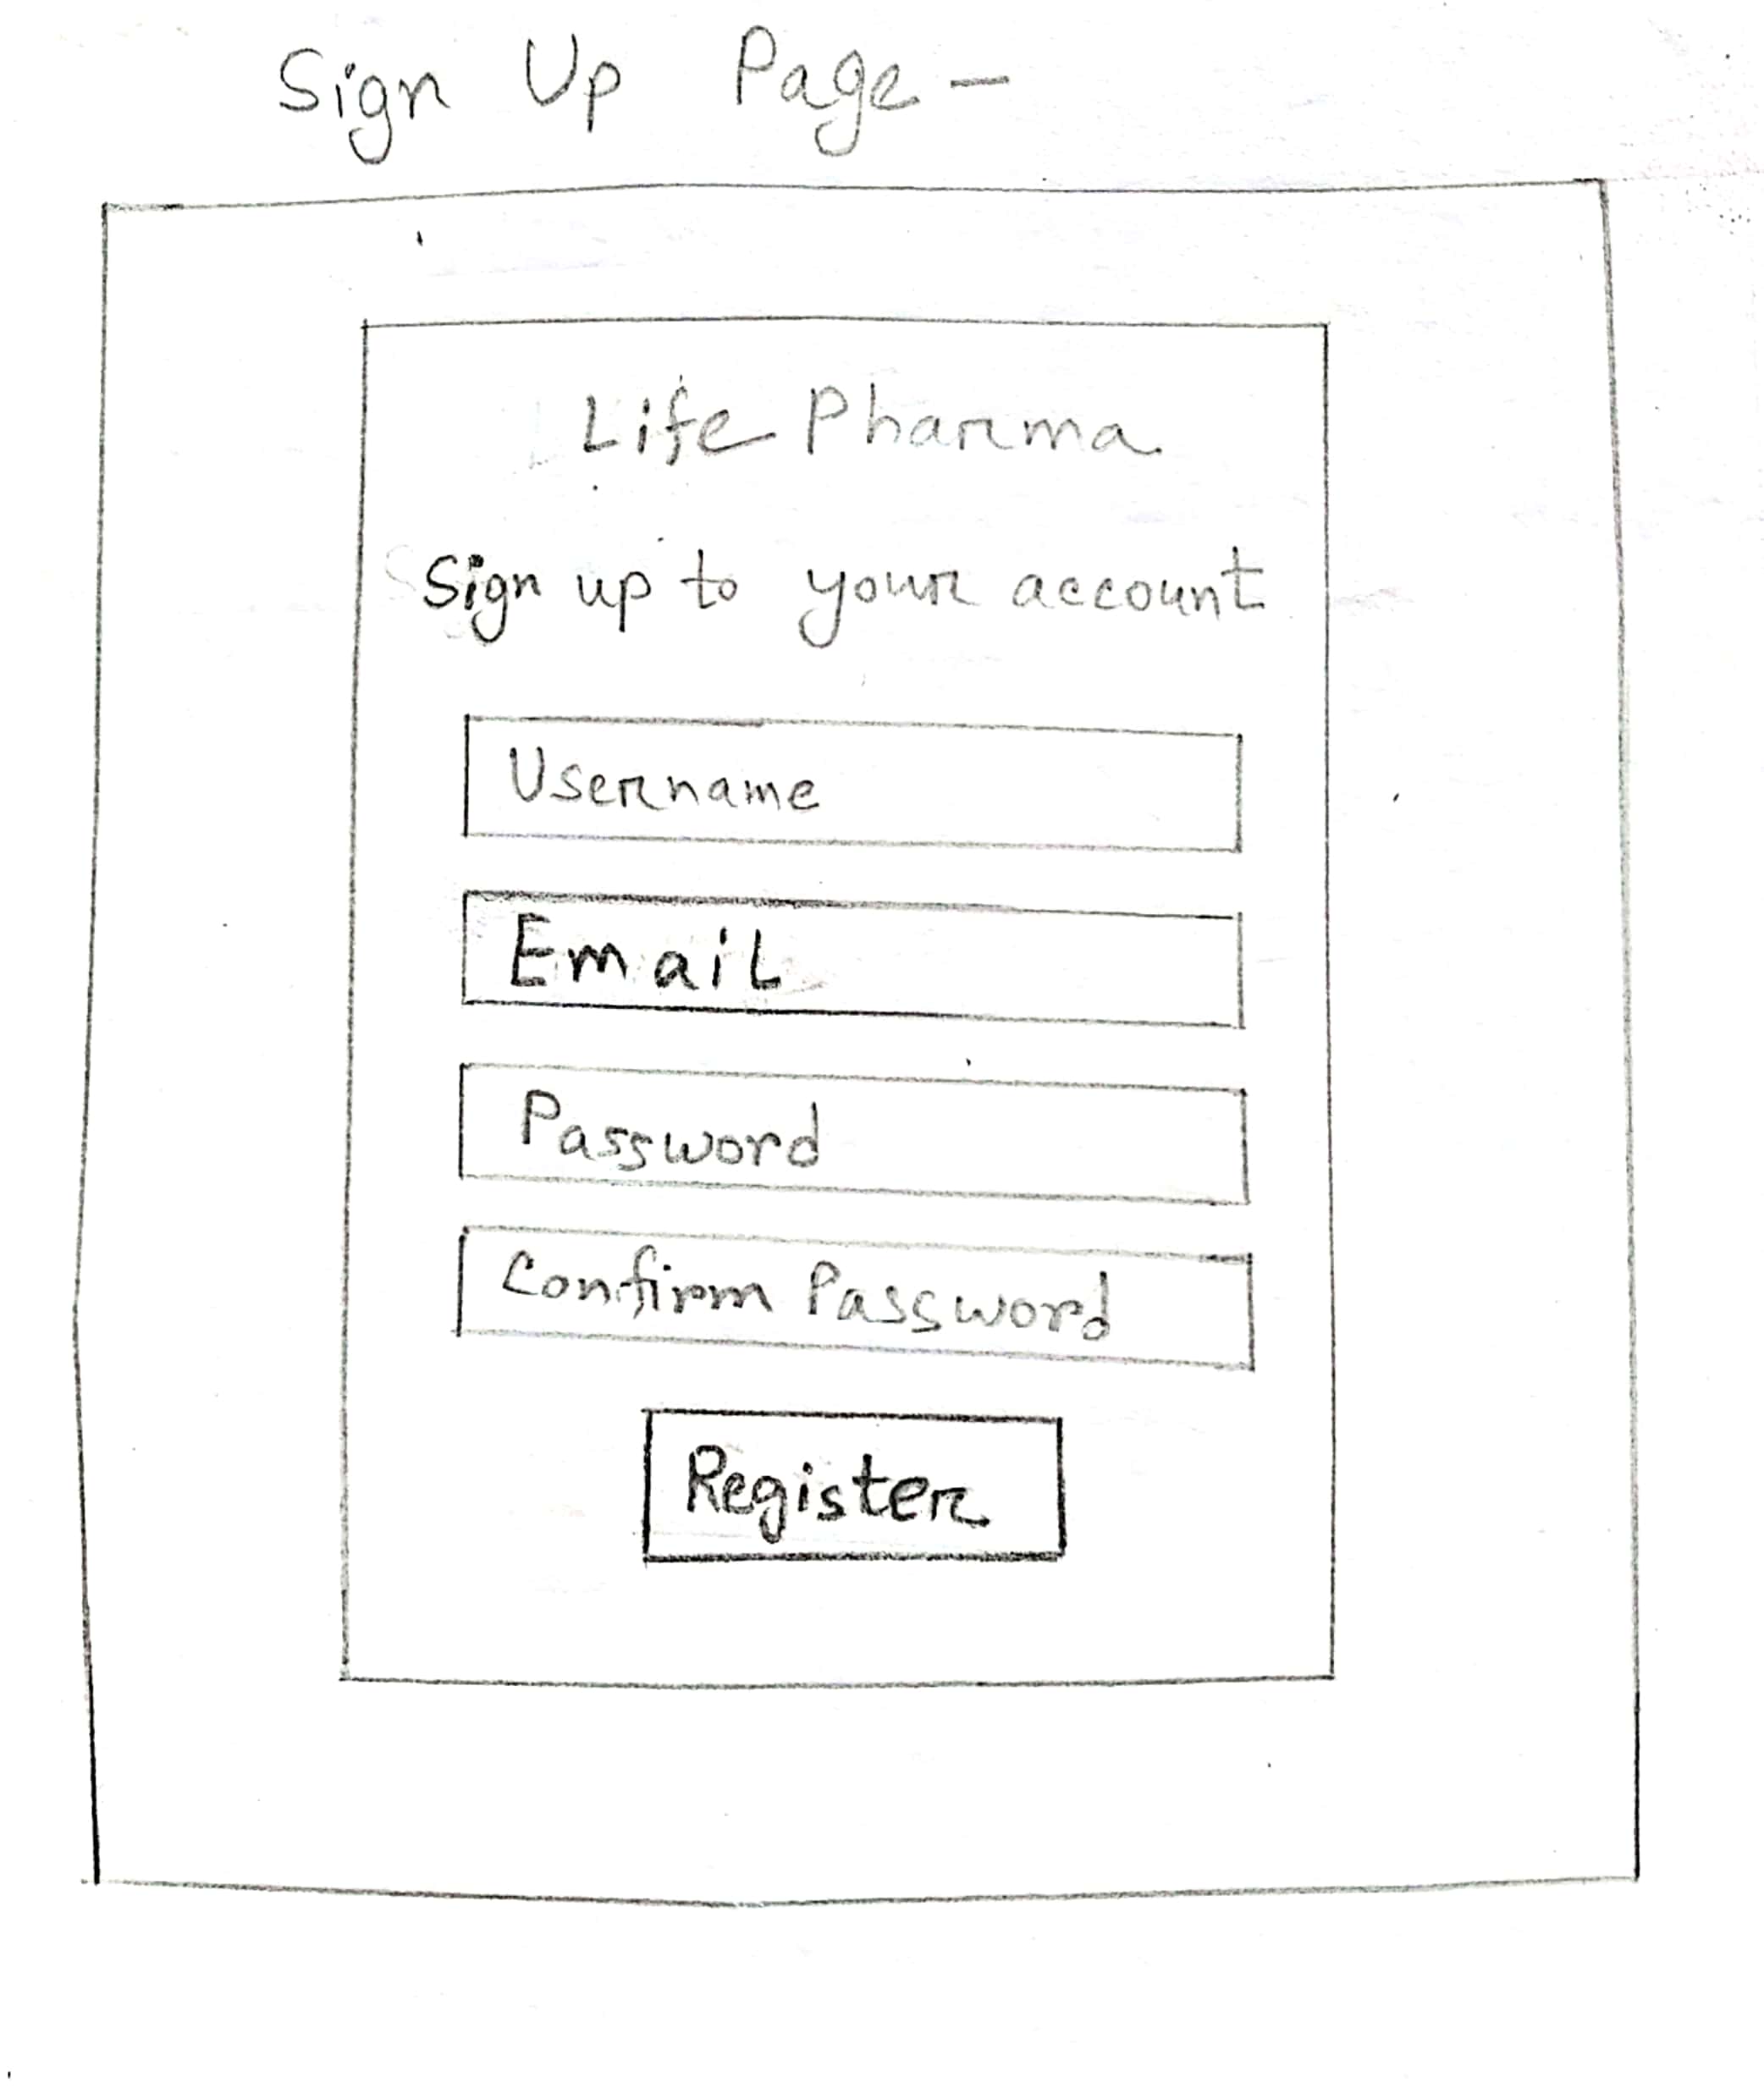 Sign Up Page-
Life Pharma
Sign up to your account
Username
Email
Password
Confirm Password
Register